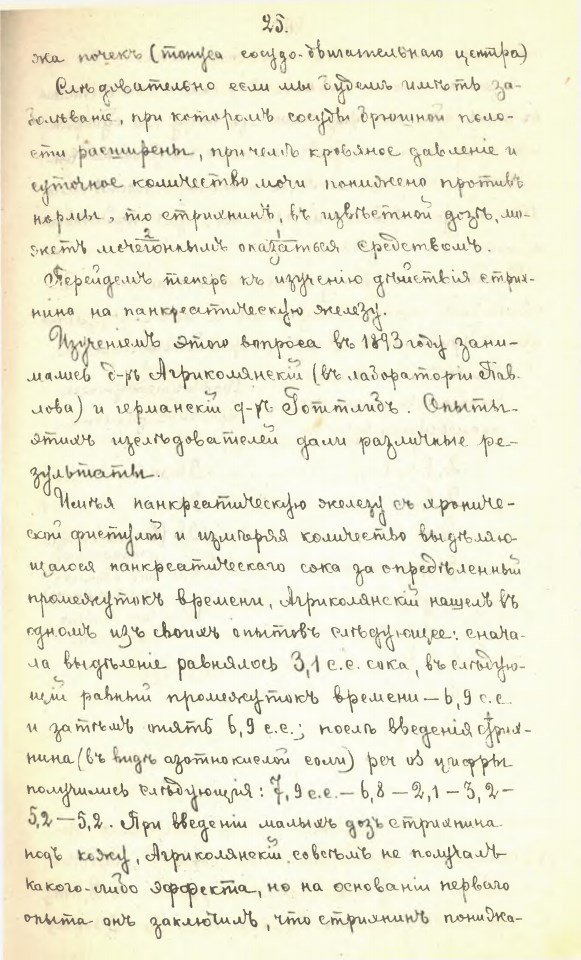 25.
жа почекъ (тонуса сосудо-двигательнаго центра)
Слѣдовательно если мы будемъ имѣть за-
болѣваніе, при которомъ сосуды брюшной поло-
сти расширены, причемъ кровяное давленіе и
суточное количество мочи понижено противъ
нормы, то стрихнинъ, въ извѣстной дозѣ, мо-
жетъ мочегоннымъ 2 оказаться 1 средствомъ.
Перейдемъ теперь къ изученію дѣйствія стрих-
нина на панкреатическую железу.
Изученіемъ этого вопроса въ 1893 году зани-
мались д-ръ Агриколянскій (въ лабораторіи Пав-
лова) и германскій д-ръ Готтлибъ. Опыты
этихъ изслѣдователей дали различные ре-
зультаты.
Имѣя панкреатическую железу съ хрониче-
ской фистулой и измѣряя количество выдѣляю-
щагося панкреатическаго сока за опредѣленный
промежутокъ времени, Агриколянскій нашелъ въ
одномъ изъ своихъ опытовъ слѣдующее: снача-
ла выдѣленіе равнялось 3,1 с.с. сока, въ слѣдую-
щій равный промежутокъ времени — 6,9 с.с.
и затѣмъ опять 6,9 с.с.; послѣ введенія стрих-
нина (въ видѣ азотнокислой соли) per os цифры
получились слѣдующія: 7,9 с.с. — 6,8 — 2,1 — 3,2 —
5,2 — 5,2. При введеніи малыхъ дозъ стрихнина
подъ кожу, Агриколянскій совсѣмъ не получалъ
какого-либо эффекта, но на основаніи перваго
опыта онъ заключилъ, что стрихнинъ понижа-